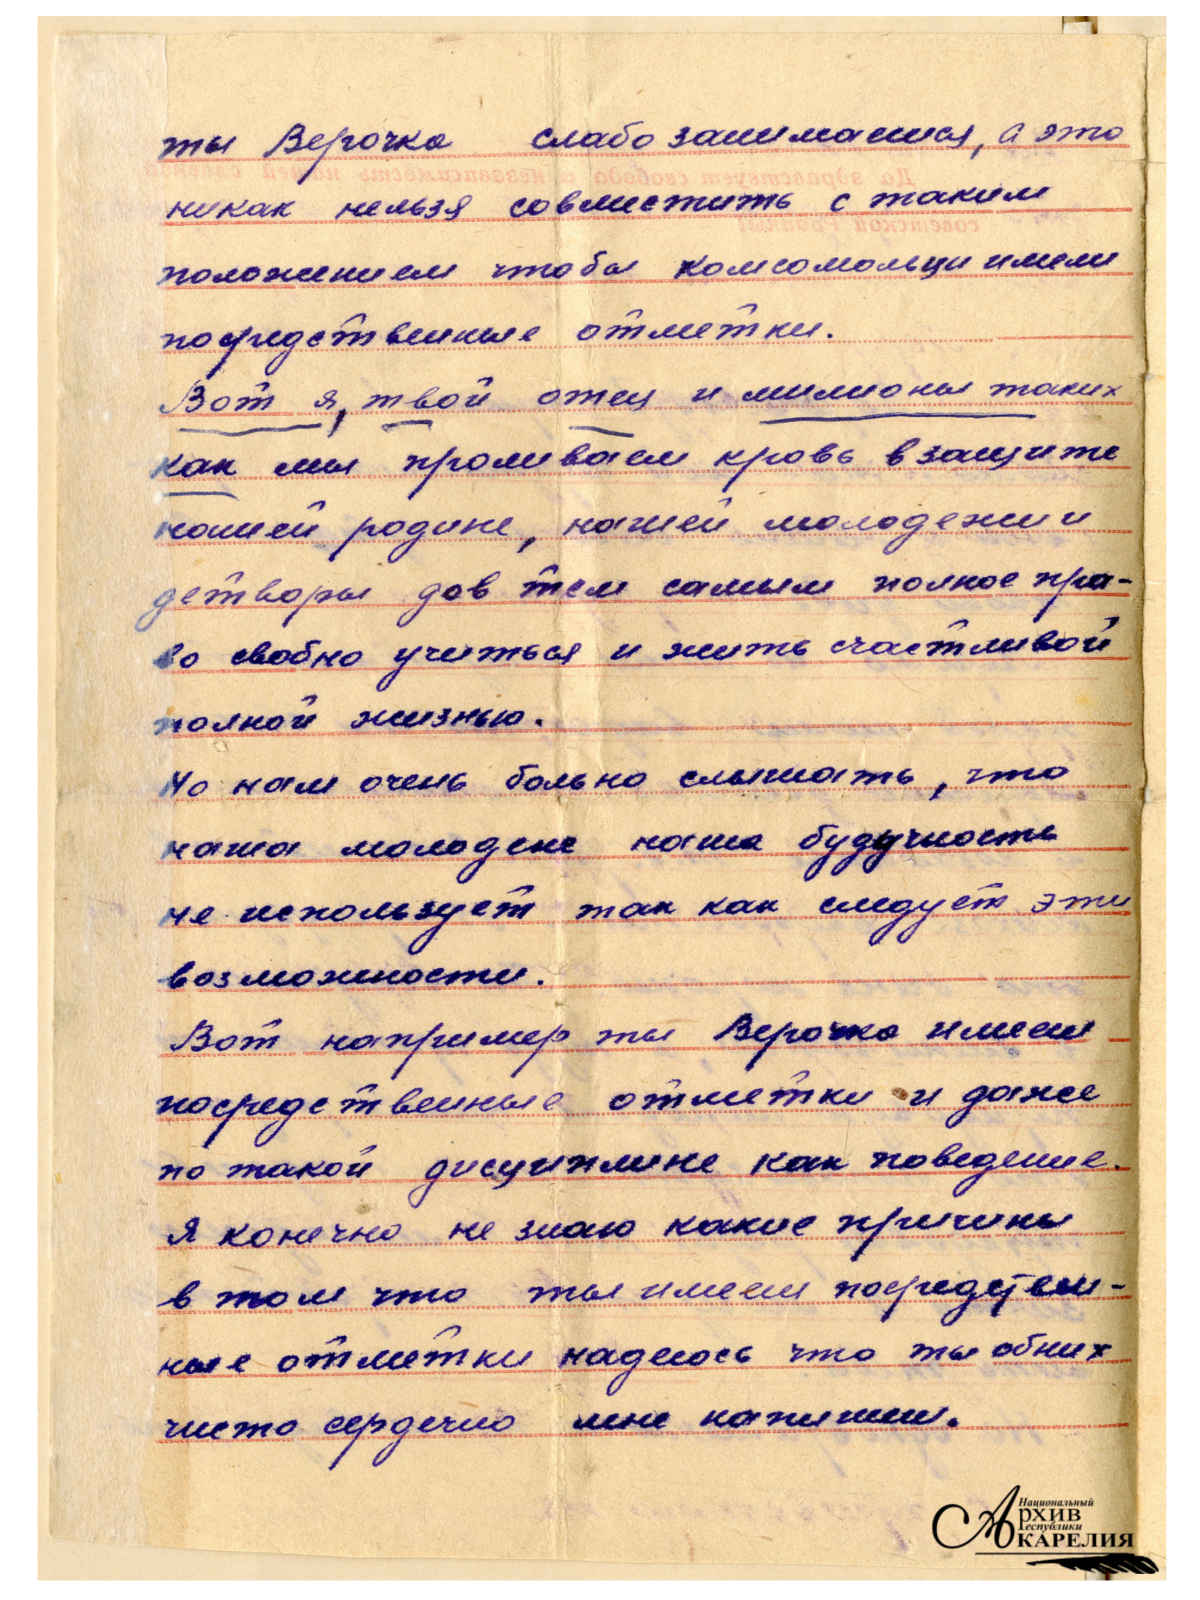 ты Верочка слабо занимаешся, а это
никак нельзя совместить с таким
положением чтобы комсомольцы имели
посредственные отметки.
Вот я, твой отец и милионы таких
как мы проливаем кровь в защите
нашей родине, нашей молодежи и
детворы дав тем самым полное пра-
во свобно учиться и жить счастливой
полной жизнью.
Но нам очень больно слышать, что
наша молодеж наша будучность
не использует так как следует эти
возможности.
Вот например ты Верочка имееш
посредственные отметки и даже
по такой дисциплине как поведение.
Я конечно не знаю какие причины
в том что ты имееш посредствен-
ные отметки надеюсь что ты обних
чисто сердечно мне напишеш.
Национальный
Архив
Республики
Карелия